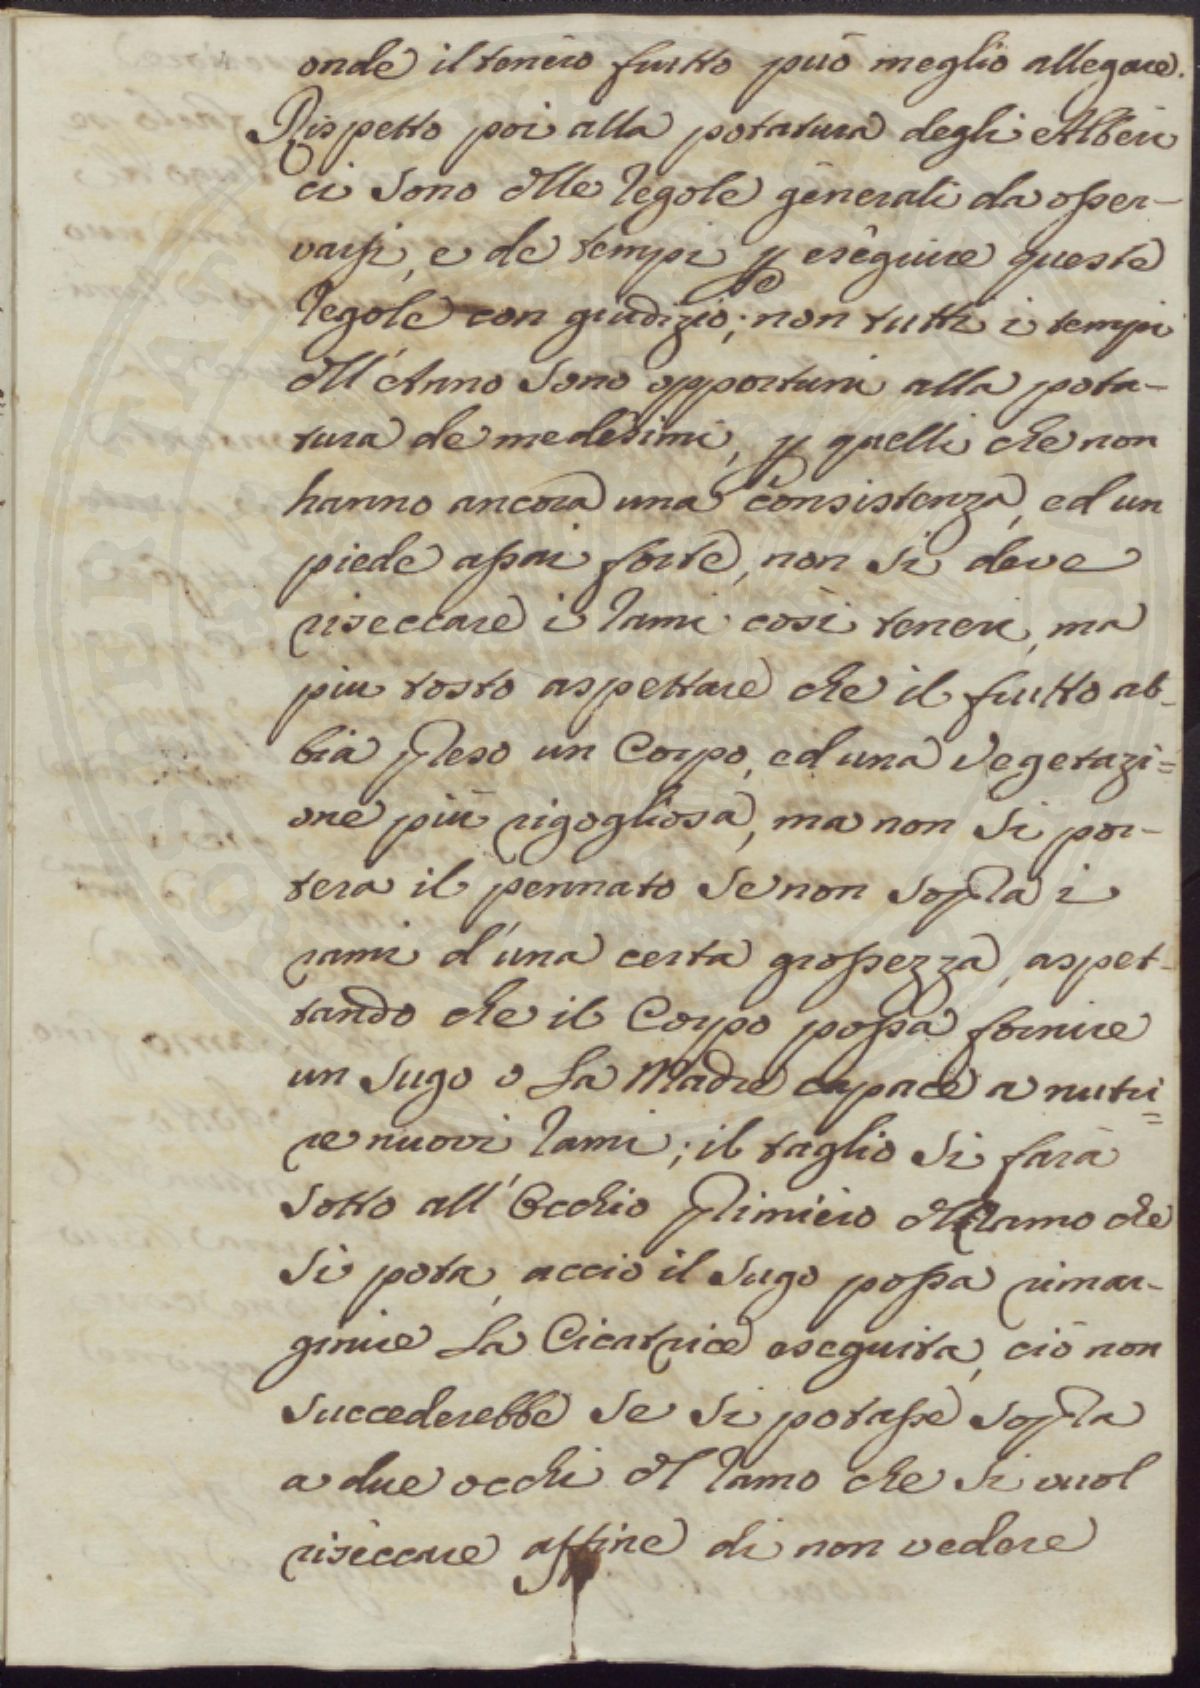 onde il tenero frutto può meglio allegare.
Rispetto poi alla potatura degli Alberi
ci sono dlle regole generali da osser-
varsi, e de tempi p eseguire queste
regole con giudizio; non tutti i tempi
dll'Anno sono opportuni alla pota-
tura de medesimi, p quelli che non
hanno ancora una consistenza, ed un
piede assai forte, non si deve
riseccare i rami così teneri, ma
piu tosto aspettare che il frutto ab-
bia preso un Corpo, ed una vegetazi=
one più rigogliosa, ma non si por-
tera il pennato se non sopra i
rami d'una certa grossezza, aspet-
tando che il Corpo possa fornire
un sugo o la Madre capace a nutri=
re nuovi rami; il taglio si farà
sotto all'Occhio primiero dl ramo che
si pota, accio il sugo possa rimar-
ginire la Cicatrice eseguita, ciò non
succederebbe se si potasse sopra
a due occhi dl ramo che si vuol
riseccare affine di non vedere